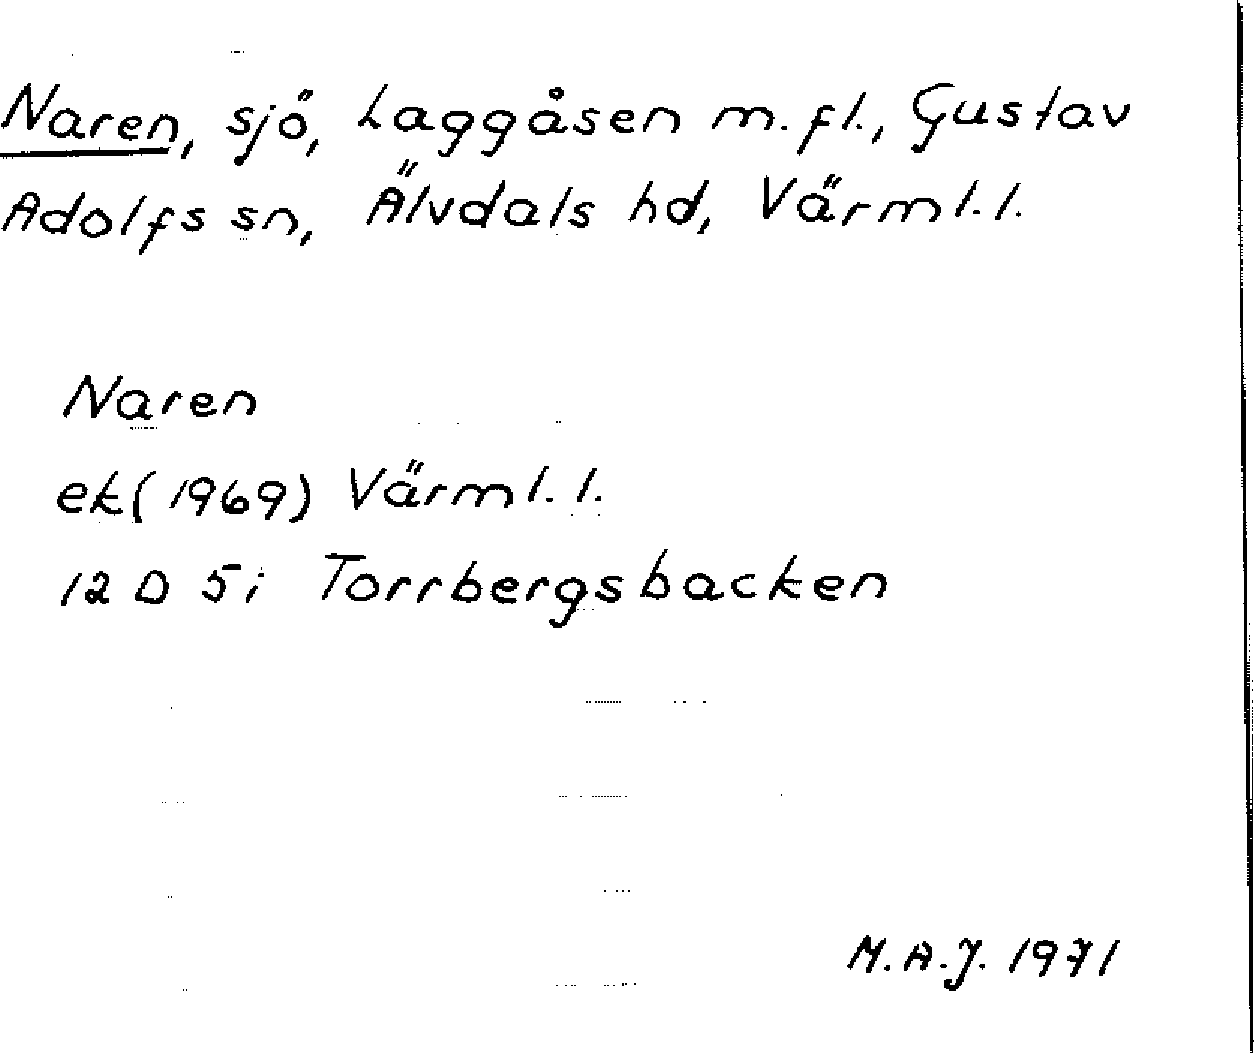 Naren, sjö, Laggåsen m.fl., Gustav
Adolfs sn, Älvdals hd, Värml. l.
Naren
ek (1969) Värml. l.
12 D 5i Torrbergsbacken
M.A.J. 1971